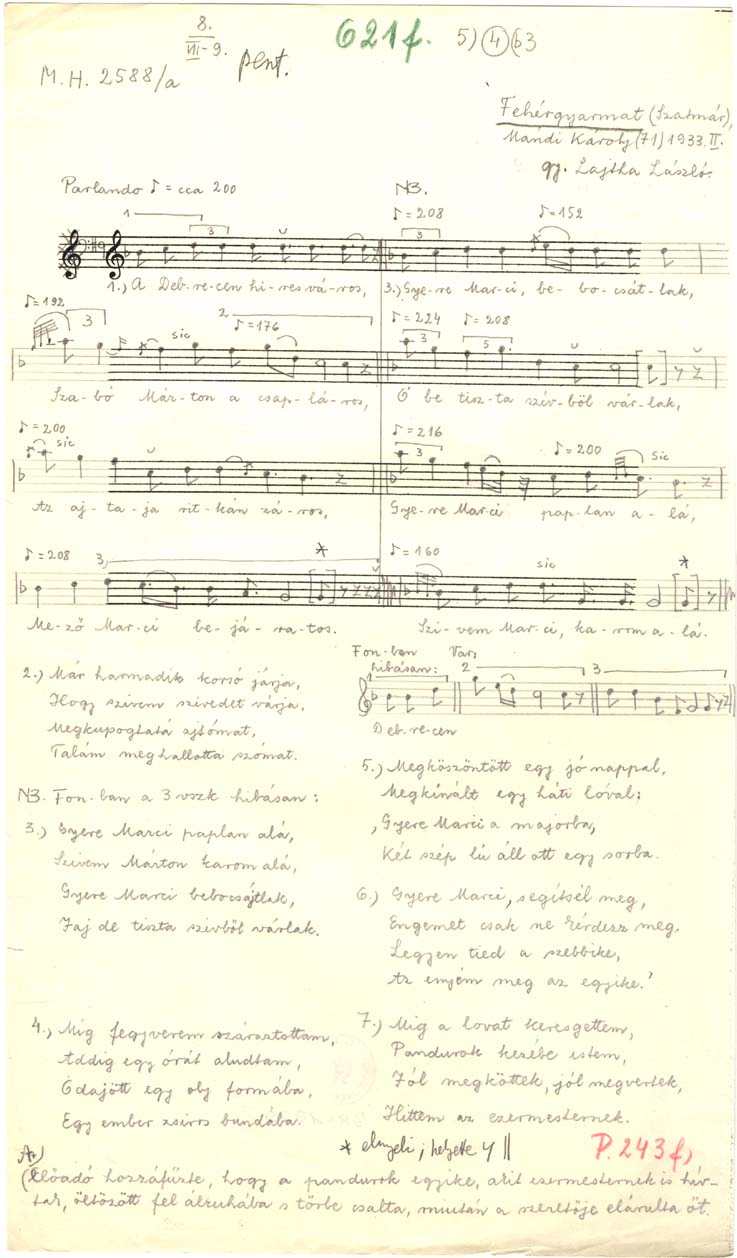 8.
VII-9.
621f. 5) 4 b3
M.H. 2588/a
pent.
Fehérgyarmat (Szatmár),
Mándi Károly (71) 1933. II.
gy. Lajtha László.
Parlando ♪ = cca 200
N3.
1
3
♪ = 208
3
♪ = 152
1.) A Deb-re-cen hí-res vá-ros,
3.) Gye-re Mar-ci, be-bo-csát-lak,
♪ = 192
3
sic
2
♪ = 176
♪ = 224
3
♪ = 208
5
Sza-bó Már-ton a csap-lá-ros,
Ó be tisz-ta szív-ből vár-lak,
♪ = 200
sic
♪ = 216
3
♪ = 200
sic
Az aj-ta-ja rit-kán zá-ros,
Gye-re Mar-ci pap-lan a-lá,
♪ = 208
3
*
♪ = 160
sic
*
Me-ző Mar-ci be-já-ra-tos.
Szi-vem Mar-ci, ka-rom a-lá.
Fon-ban
hibásan:
Var:
1
2
3
Deb-re-cen
2.) Már harmadik korsó járja,
Hogy szivem szivedet várja,
Megkupogtatá ajtómat,
Talám meghallotta szómat.
N3. Fon-ban a 3 vszk hibásan:
3.) Gyere Marci paplan alá,
Szivem Márton karom alá,
Gyere Marci bebocsájtlak,
Jaj de tiszta szivből várlak.
4.) Míg fegyverem száraztottam,
Addig egy órát aludtam,
Odajött egy oly formába,
Egy ember zsiros bundába.
5.) Megköszöntött egy jó nappal,
Megkínált egy háti lóval:
„Gyere Marci a majorba,
Két szép lú áll ott egy sorba.
6.) Gyere Marci, segítsél meg,
Engemet csak ne kérdezz meg.
Legyen tied a szebbike,
Az enjém meg az egyike."
7.) Mig a lovat keresgettem,
Pandurok kezébe estem,
Jól megkötték, jól megverték,
Hittem az ezermesternek.
* elnyeli; helyette 𝄾 ||
P. 243 f)
A)
(Előadó hozzáfűzte, hogy a pandurok egyike, akit ezermesternek is hív-
tak, öltözött fel álruhába s tőrbe csalta, miután a szeretője elárulta őt.